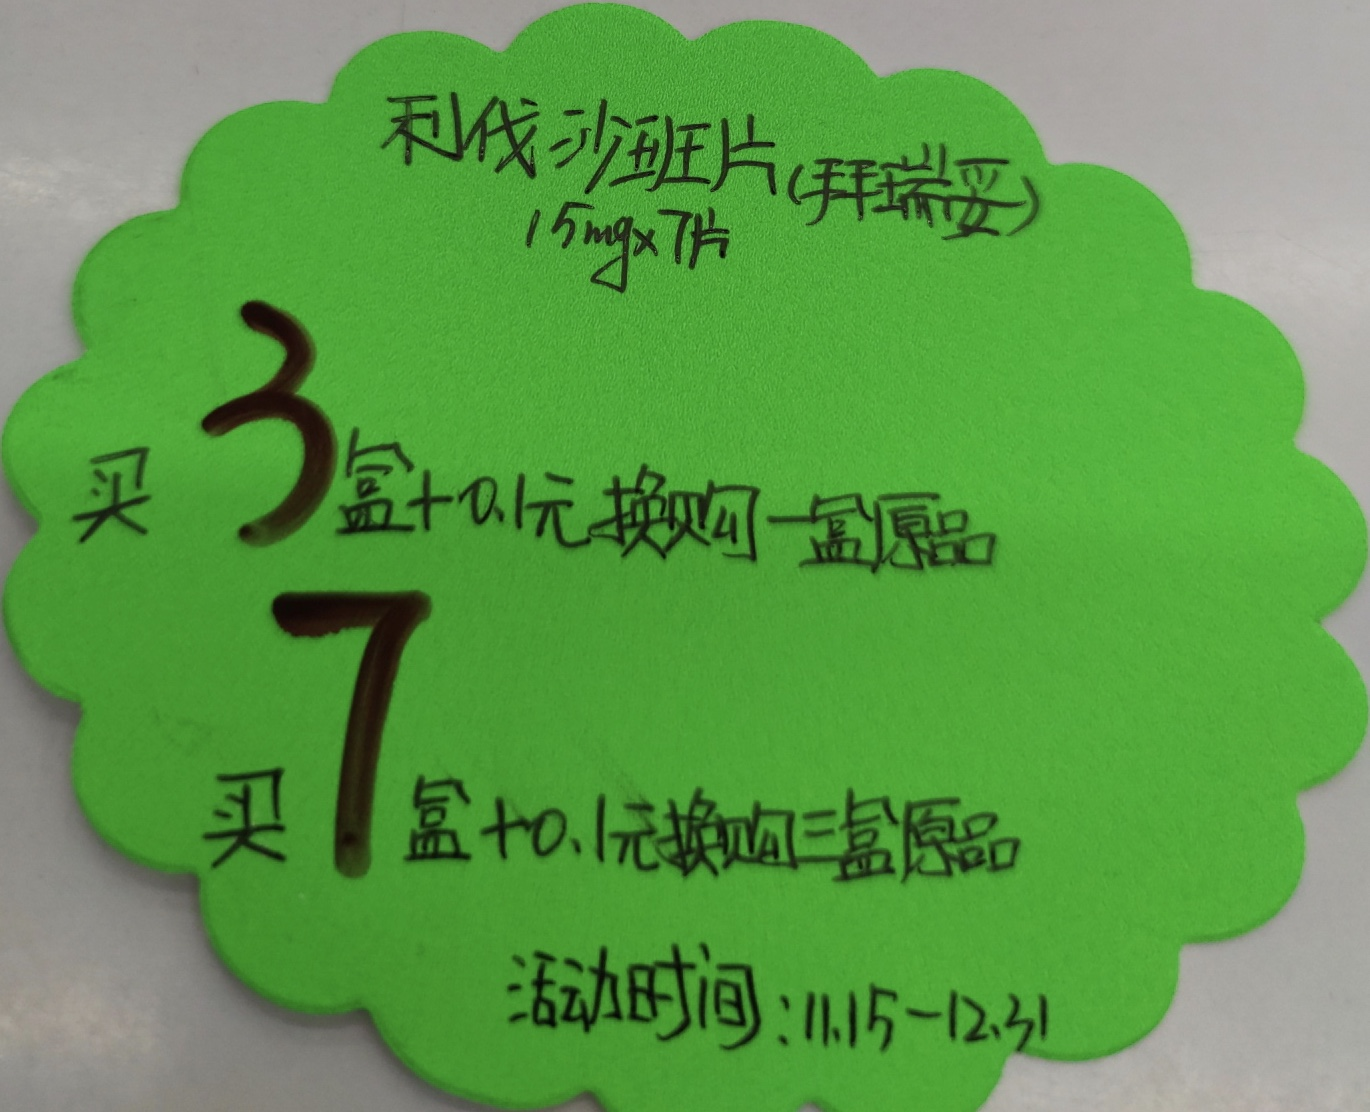 利伐沙班片(拜瑞妥)
15mg×7片
买3盒+0.1元换购一盒原品
买7盒+0.1元换购三盒原品
活动时间:11.15-12.31